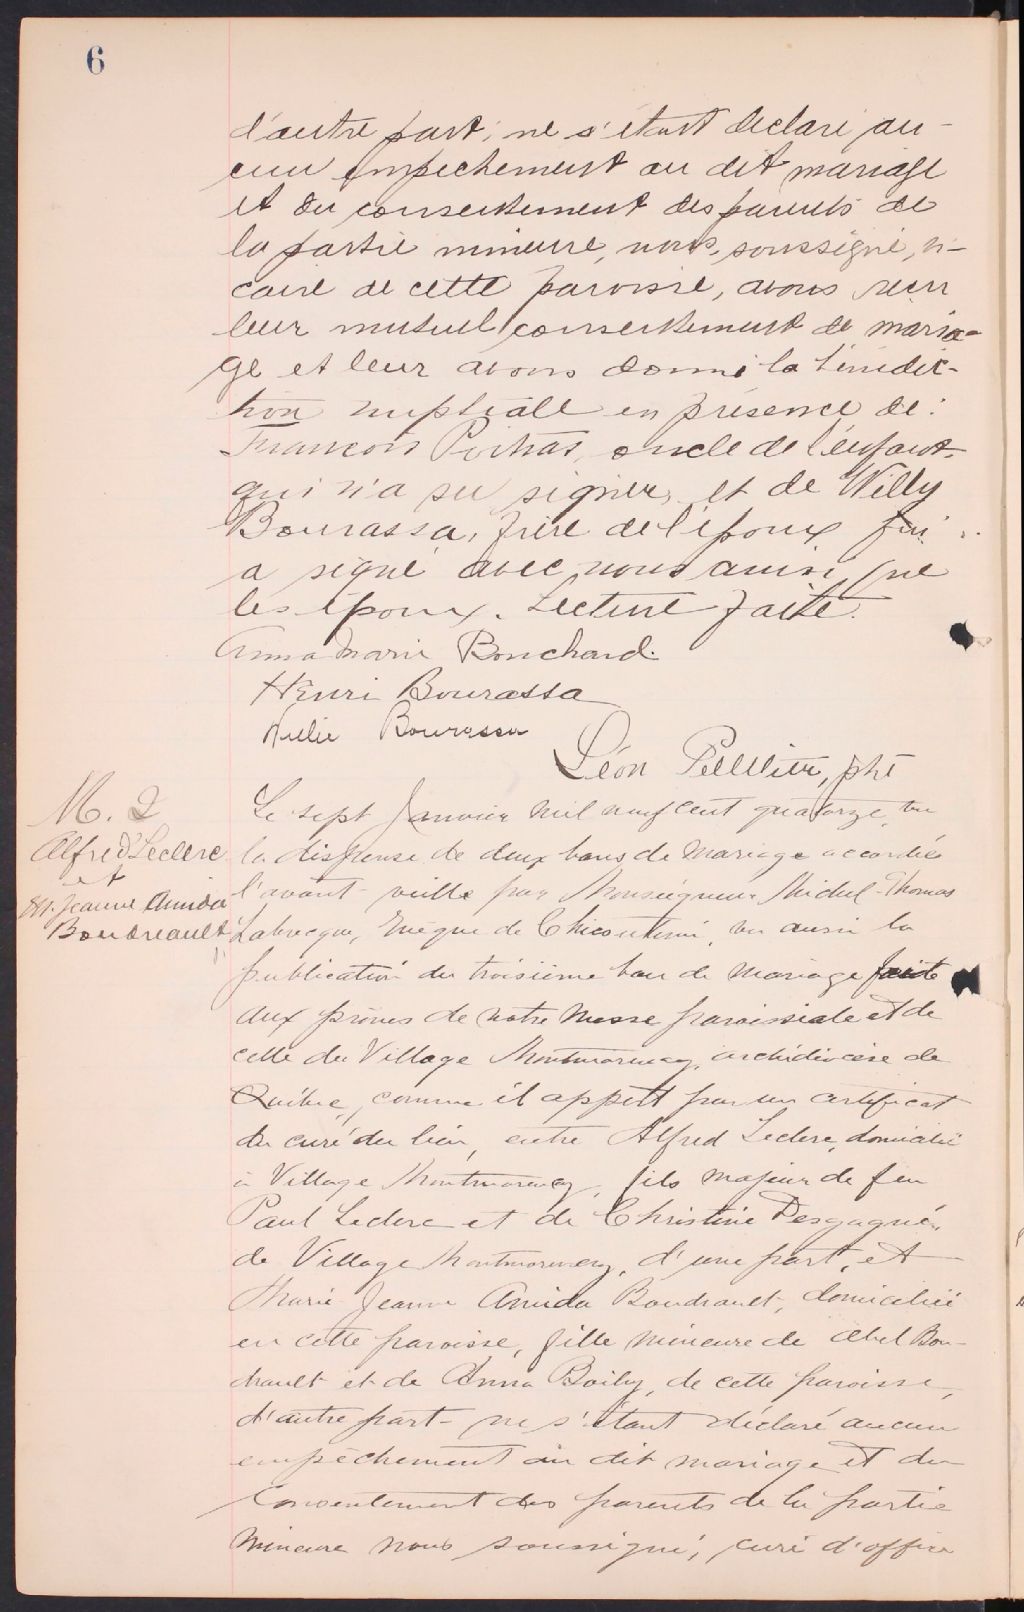 6
d'autre part; ne s'étant declaré au-
cun empechement au dit mariage
et du consentement des parents de
la partie mineure, nous, soussigné, vi-
caire de cette paroisse, avons reçu
leur mutuel consentement de maria-
ge et leur avons donné la bénédic-
tion nuptiale en présence de:
François Poitras, oncle de l'enfant
qui n'a su signer, et de Willy
Bourassa, frère de l'époux qui
a signé avec nous ainsi que
les époux. Lecture faite.
Anna Marie Bouchard.
Henri Bourassa
Bourassa
Léon Pelletier, ptre
M. 2
Alfred Leclerc
et
M. Jeanne Amida
Boudreault
Le sept Janvier mil neuf cent quatorze, vu
la dispense de deux bans de mariage accordée
l'avant-veille par Monseigneur Michel-Thomas
Labrecque, Evêque de Chicoutimi, vu aussi la
publication du troisième ban de mariage faite
aux prônes de notre Messe paroissiale et de
celle du Village Montmorency, archidiocèse de
Québec, comme il appert par un certificat
du curé du lieu, entre Alfred Leclerc, domicilié
à Village Montmorency, fils majeur de feu
Paul Leclerc et de Christine Desgagné,
de Village Montmorency, d'une part, et
Marie Jeanne Amida Boudrault, domiciliée
en cette paroisse, fille mineure de Abel Bou-
drault et de Anna Boily, de cette paroisse,
d'autre part - ne s'étant déclaré aucun
empêchement au dit mariage et du
Consentement des parents de la partie
mineure nous soussigné, curé d'office